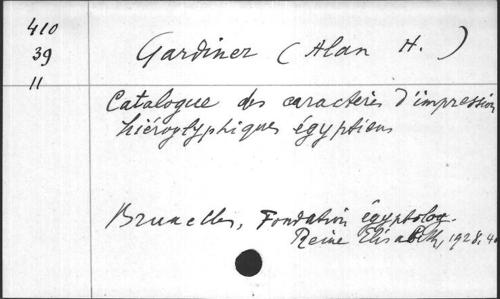 410
39
11
Gardiner (Alan H.)
Catalogue des caractères d'impression
hiéroglyphiques égyptiens
Bruxelles, Fondation égyptolog.
Reine Elisabeth, 1928, 4o